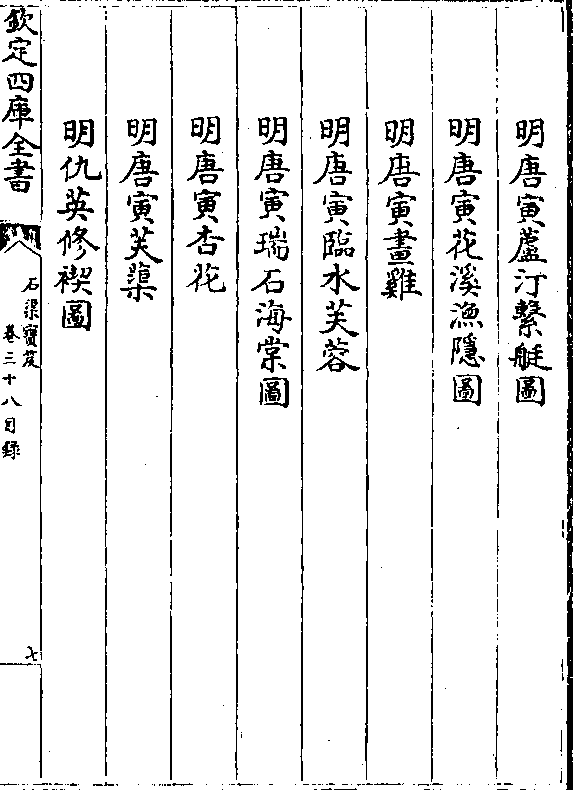 明唐寅蘆汀繫艇圖
明唐寅花溪漁隱圖
明唐寅畫雞
明唐寅臨水芙蓉
明唐寅瑞石海棠圖
明唐寅杏花
明唐寅芙蕖
明仇英修禊圖
欽定四庫全書
石渠寶笈
卷三十八目録
七